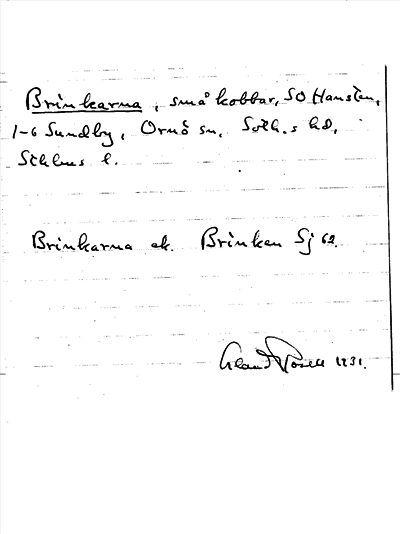 Brinkarna, små kobbar, SO Hansten,
1-6 Sundby, Ornö sn, Soth.s hd,
Sthlms l.
Brinkarna ek. Brinken Sj 62.
1931.